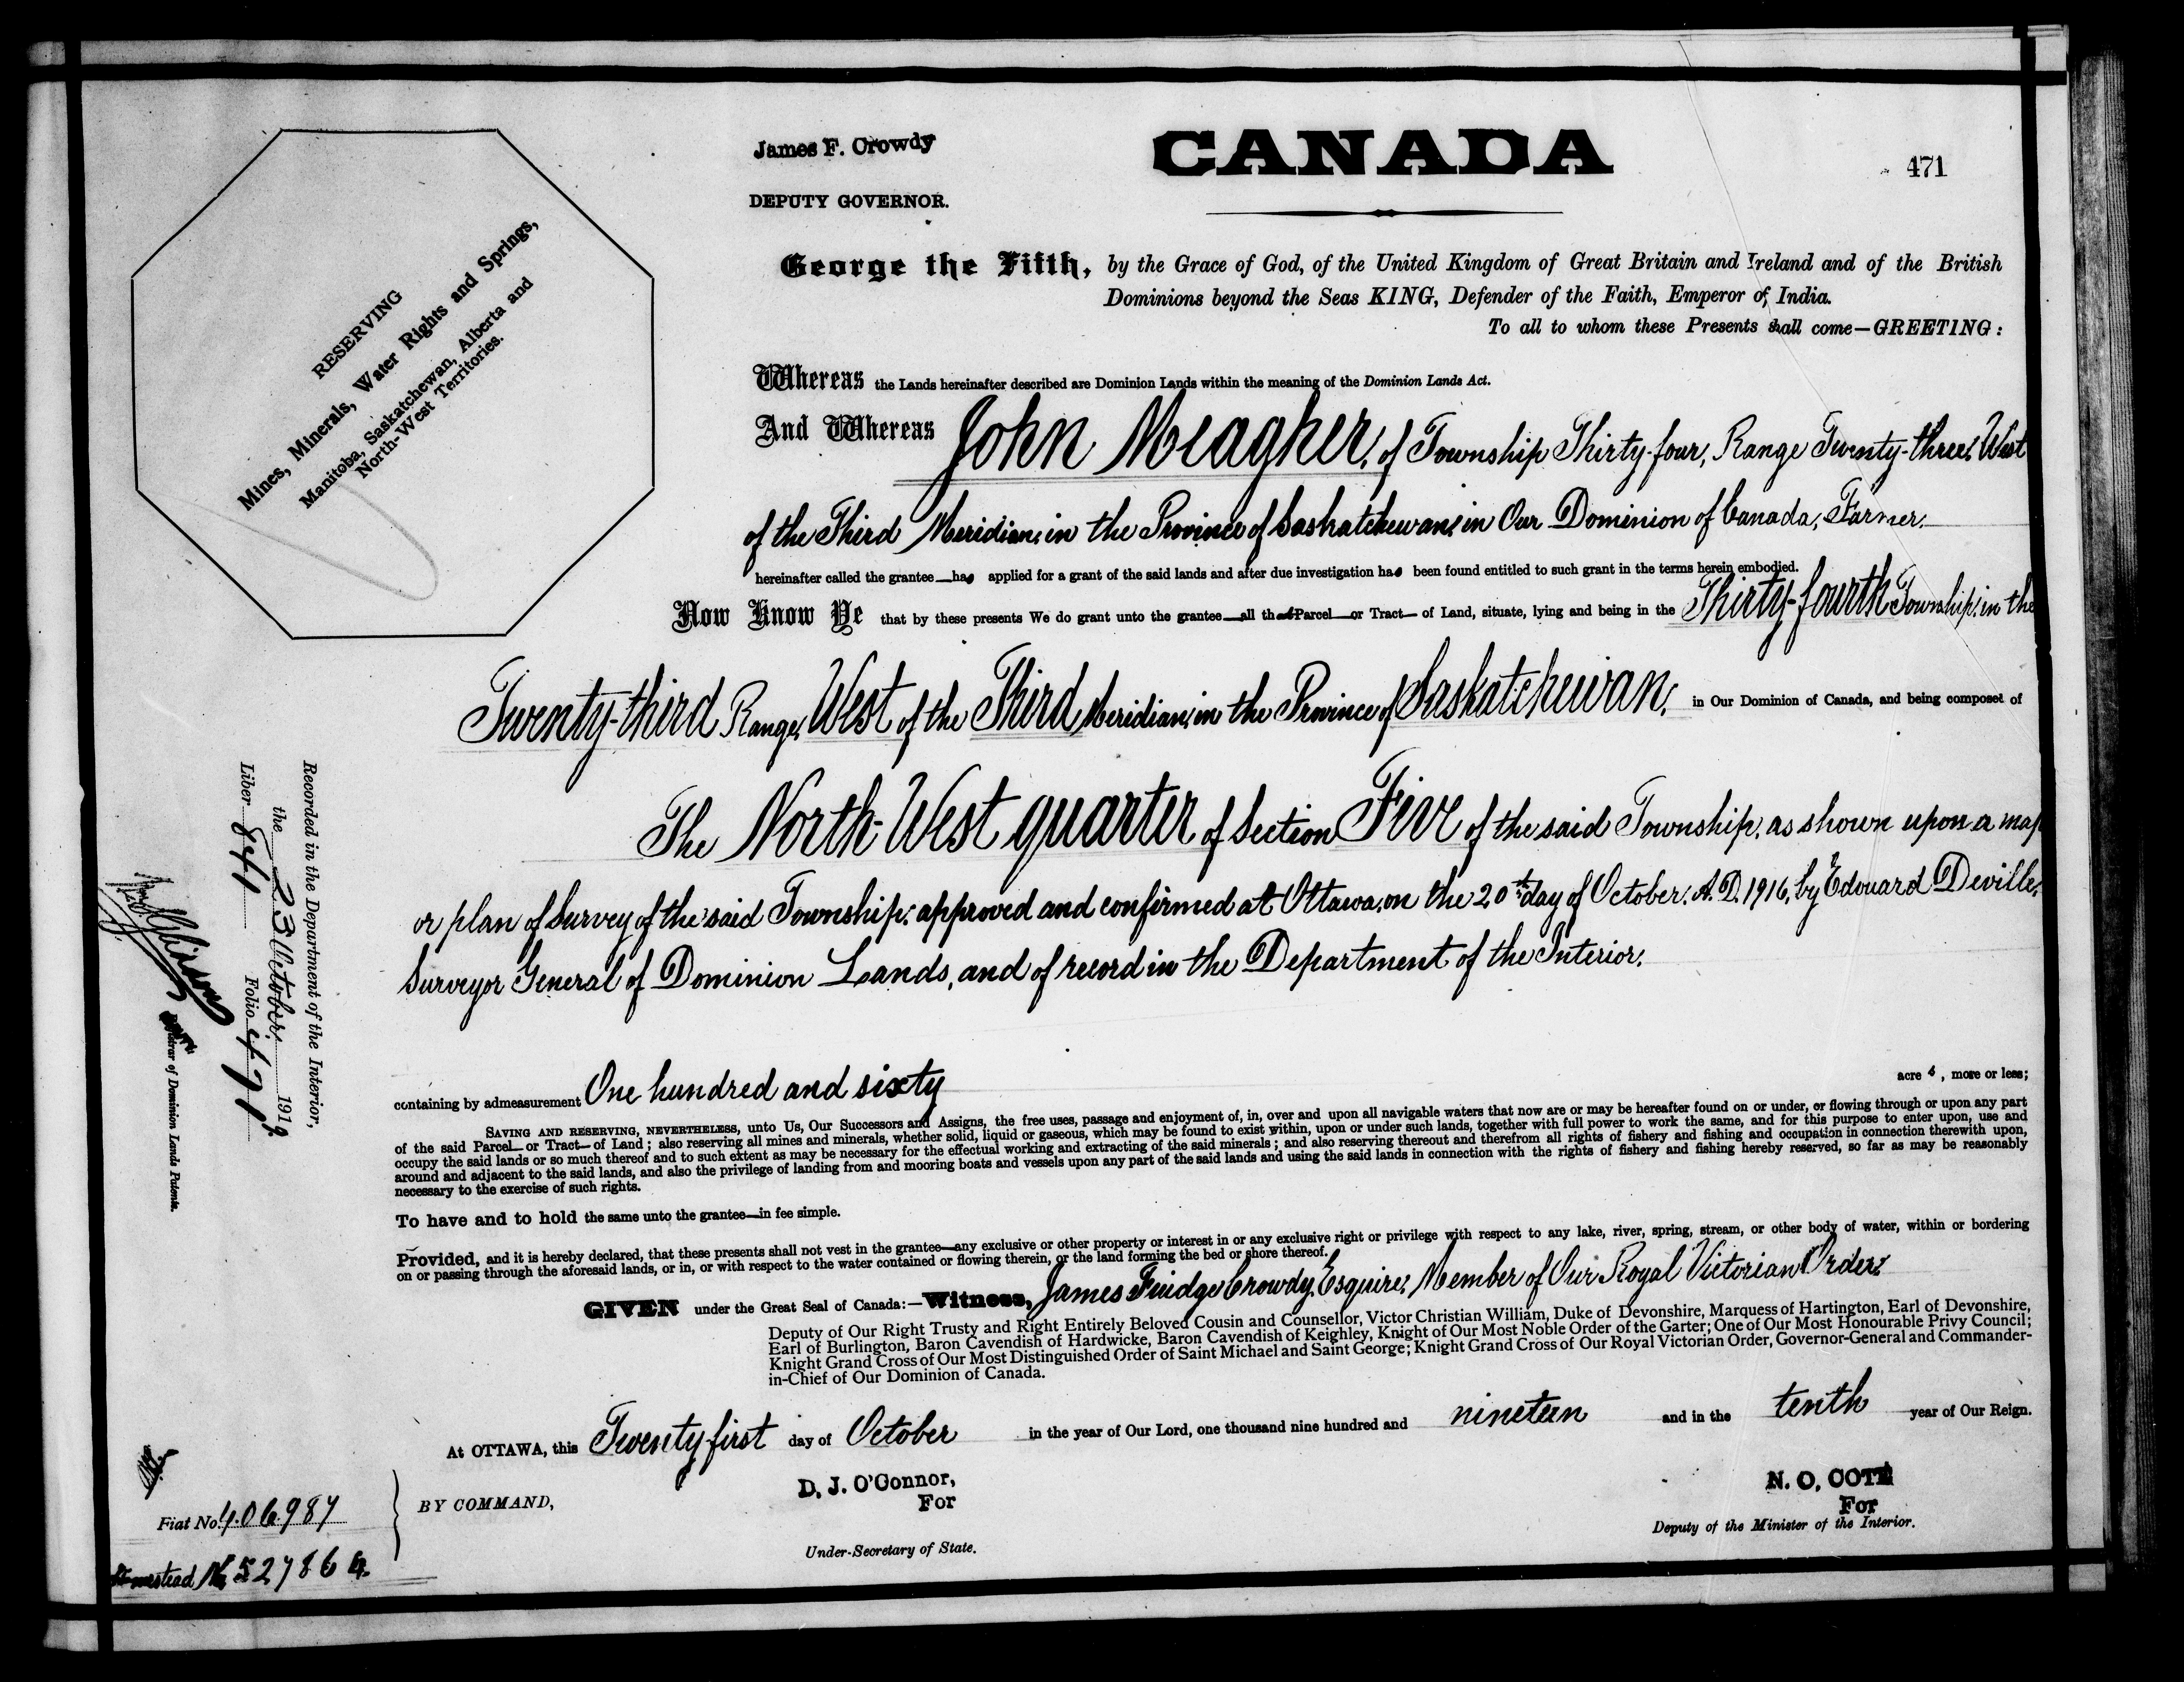 James F. Crowdy
DEPUTY GOVERNOR.
CANADA
471
RESERVING
Mines, Minerals, Water Rights and Springs,
Manitoba, Saskatchewan, Alberta and
North-West Territories.
George the Fifth, by the Grace of God, of the United Kingdom of Great Britain and Ireland and of the British
Dominions beyond the Seas KING, Defender of the Faith, Emperor of India.
To all to whom these Presents shall come—GREETING:
Whereas the Lands hereinafter described are Dominion Lands within the meaning of the Dominion Lands Act.
And Whereas John Meagher, of Township Thirty-four, Range Twenty-three, West
of the Third Meridian, in the Province of Saskatchewan, in Our Dominion of Canada, Farmer.
hereinafter called the grantee—has applied for a grant of the said lands and after due investigation has been found entitled to such grant in the terms herein embodied.
Now Know Ye that by these presents We do grant unto the grantee—all that Parcel—or Tract— of Land, situate, lying and being in the Thirty-fourth Township, in the
Twenty-third Range, West of the Third Meridian, in the Province of Saskatchewan, in Our Dominion of Canada, and being composed of
The North-West quarter of Section Five of the said Township, as shown upon a map
or plan of Survey of the said Township, approved and confirmed at Ottawa, on the 20th day of October, A.D. 1916, by Edouard Deville,
Surveyor General of Dominion Lands, and of record in the Department of the Interior.
containing by admeasurement One hundred and sixty acres, more or less;
SAVING AND RESERVING, NEVERTHELESS, unto Us, Our Successors and Assigns, the free uses, passage and enjoyment of, in, over and upon all navigable waters that now are or may be hereafter found on or under, or flowing through or upon any part
of the said Parcel—or Tract—of Land; also reserving all mines and minerals, whether solid, liquid or gaseous, which may be found to exist within, upon or under such lands, together with full power to work the same, and for this purpose to enter upon, use and
occupy the said lands or so much thereof and to such extent as may be necessary for the effectual working and extracting of the said minerals; and also reserving thereout and therefrom all rights of fishery and fishing and occupation in connection therewith upon,
around and adjacent to the said lands, and also the privilege of landing from and mooring boats and vessels upon any part of the said lands and using the said lands in connection with the rights of fishery and fishing hereby reserved, so far as may be reasonably
necessary to the exercise of such rights.
To have and to hold the same unto the grantee—in fee simple.
Provided, and it is hereby declared, that these presents shall not vest in the grantee—any exclusive or other property or interest in or any exclusive right or privilege with respect to any lake, river, spring, stream, or other body of water, within or bordering
on or passing through the aforesaid lands, or in, or with respect to the water contained or flowing therein, or the land forming the bed or shore thereof.
GIVEN under the Great Seal of Canada:—Witness, James Fuidge Crowdy, Esquire, Member of Our Royal Victorian Order,
Deputy of Our Right Trusty and Right Entirely Beloved Cousin and Counsellor, Victor Christian William, Duke of Devonshire, Marquess of Hartington, Earl of Devonshire,
Earl of Burlington, Baron Cavendish of Hardwicke, Baron Cavendish of Keighley, Knight of Our Most Noble Order of the Garter; One of Our Most Honourable Privy Council;
Knight Grand Cross of Our Most Distinguished Order of Saint Michael and Saint George; Knight Grand Cross of Our Royal Victorian Order, Governor-General and Commander-
in-Chief of Our Dominion of Canada.
At OTTAWA, this Twenty first day of October in the year of Our Lord, one thousand nine hundred and nineteen and in the tenth year of Our Reign.
BY COMMAND,
D. J. O'Connor,
For
Under-Secretary of State.
N. O. COTÉ
For
Deputy of the Minister of the Interior.
Recorded in the Department of the Interior,
the 23 October, 1919
Liber 844 Folio 471
of Dominion Lands Patents.
Fiat No. 406987
Homestead No 52786